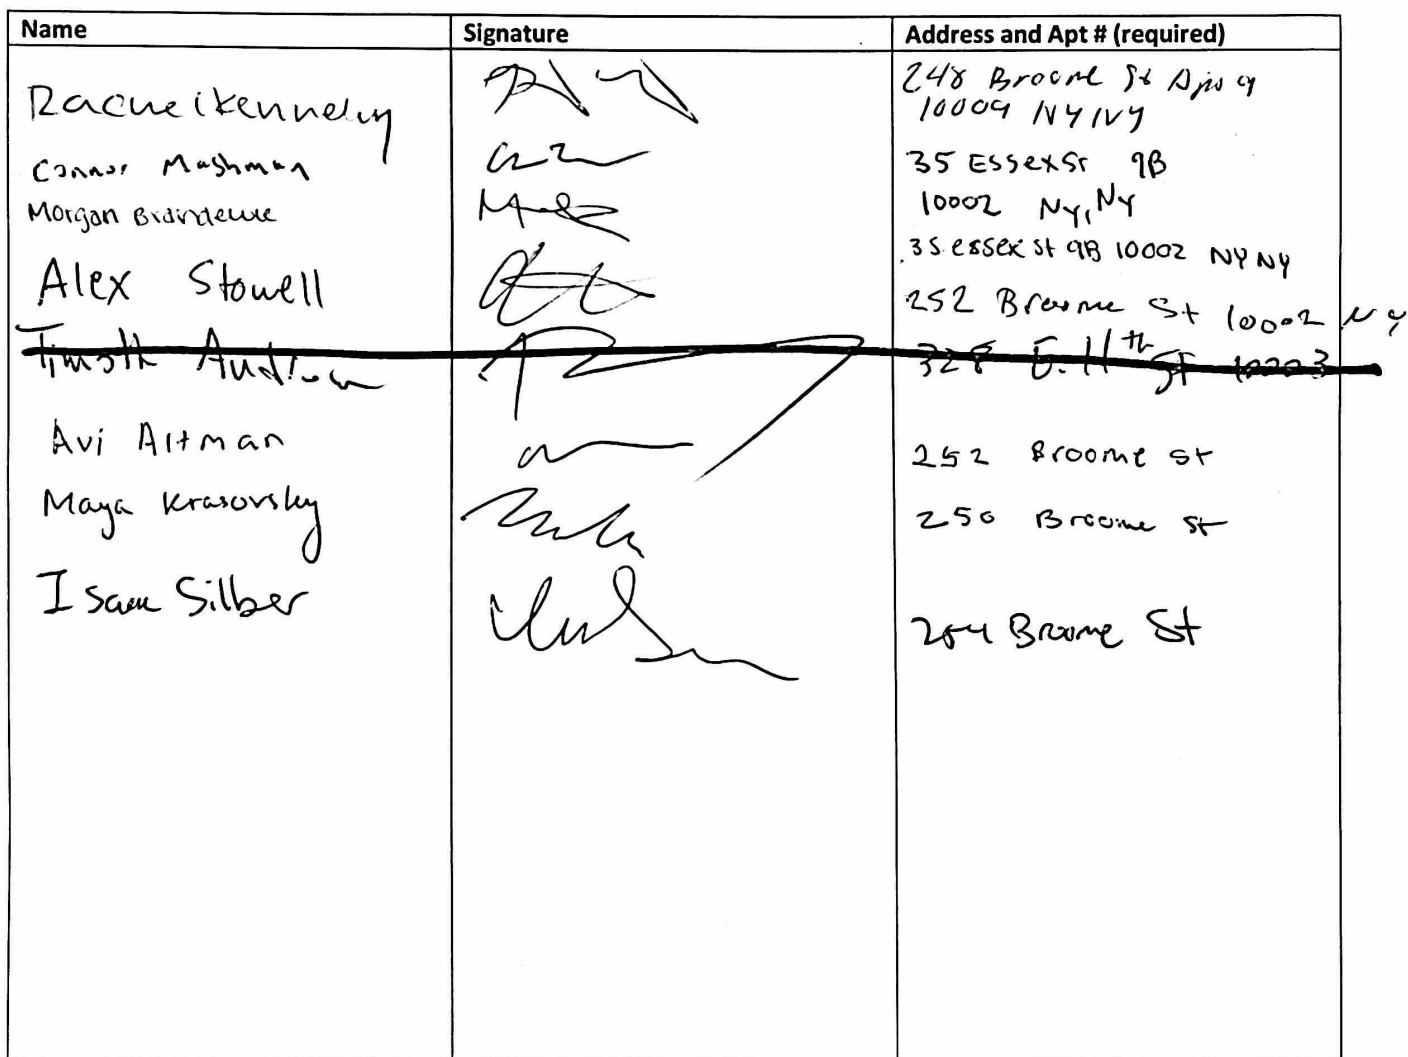 Name Signature Address and Apt # (required)
Rachel Kennedy 248 Broome St Apt 9
10009 NY NY
Connor Mashman 35 Essex St 9B
10002 NY, NY
Morgan 35 essex st 9B 10002 NY NY
Alex Stowell 252 Broome St 10002 NY
328 E. 11th St 10003
Avi Altman 252 Broome St
Maya Krasovsky 250 Broome St
Isaac Silber 254 Broome St